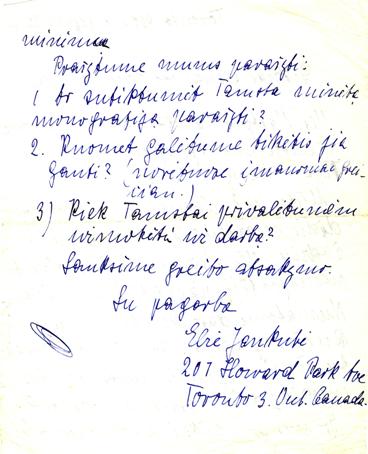 minima
Prašytume mums parašyti:
1 Ar sutiktumėt Tamsta minėtą
monografiją parašyti?
2. Kuomet galėtume tikėtis ją
gauti? (norėtumėm įmanomai grei-
čiau.)
3) Kiek Tamstai privalėtumėm
išmokėti už darbą?
Lauksime greito atsakymo.
Su pagarba
Elzė Jankutė
207 Howard Park Ave
Toronto 3. Ont. Canada.